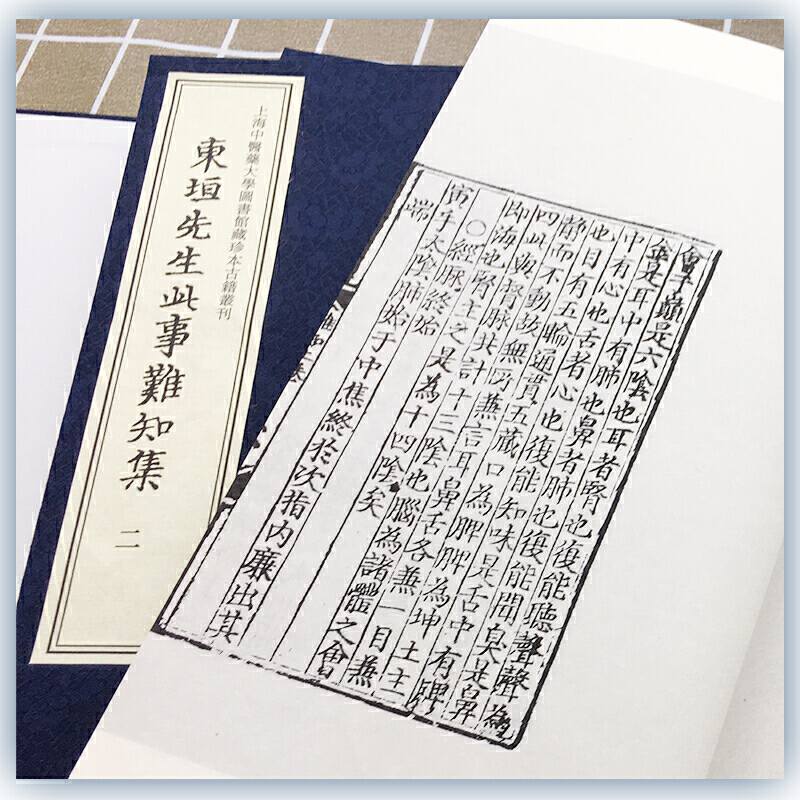 是六陰也耳者腎也復能聽聲聲為
金是耳中有肺也鼻者肺也復能聞臭是鼻
中有心也舌者心也復能知味是舌中有脾
也目有五輪通貫五藏口為脾脾為坤土主
静而不動故無所兼言耳鼻舌各兼一目兼
四此與督脉共計十三陰也腦為諸體之會
即海也腎主之是為十四陰矣
○經脉終始
寅手太陰肺始于中焦終於次指内廉出其
端
上海中醫藥大學圖書館藏珍本古籍叢刊
東垣先生此事難知集
二